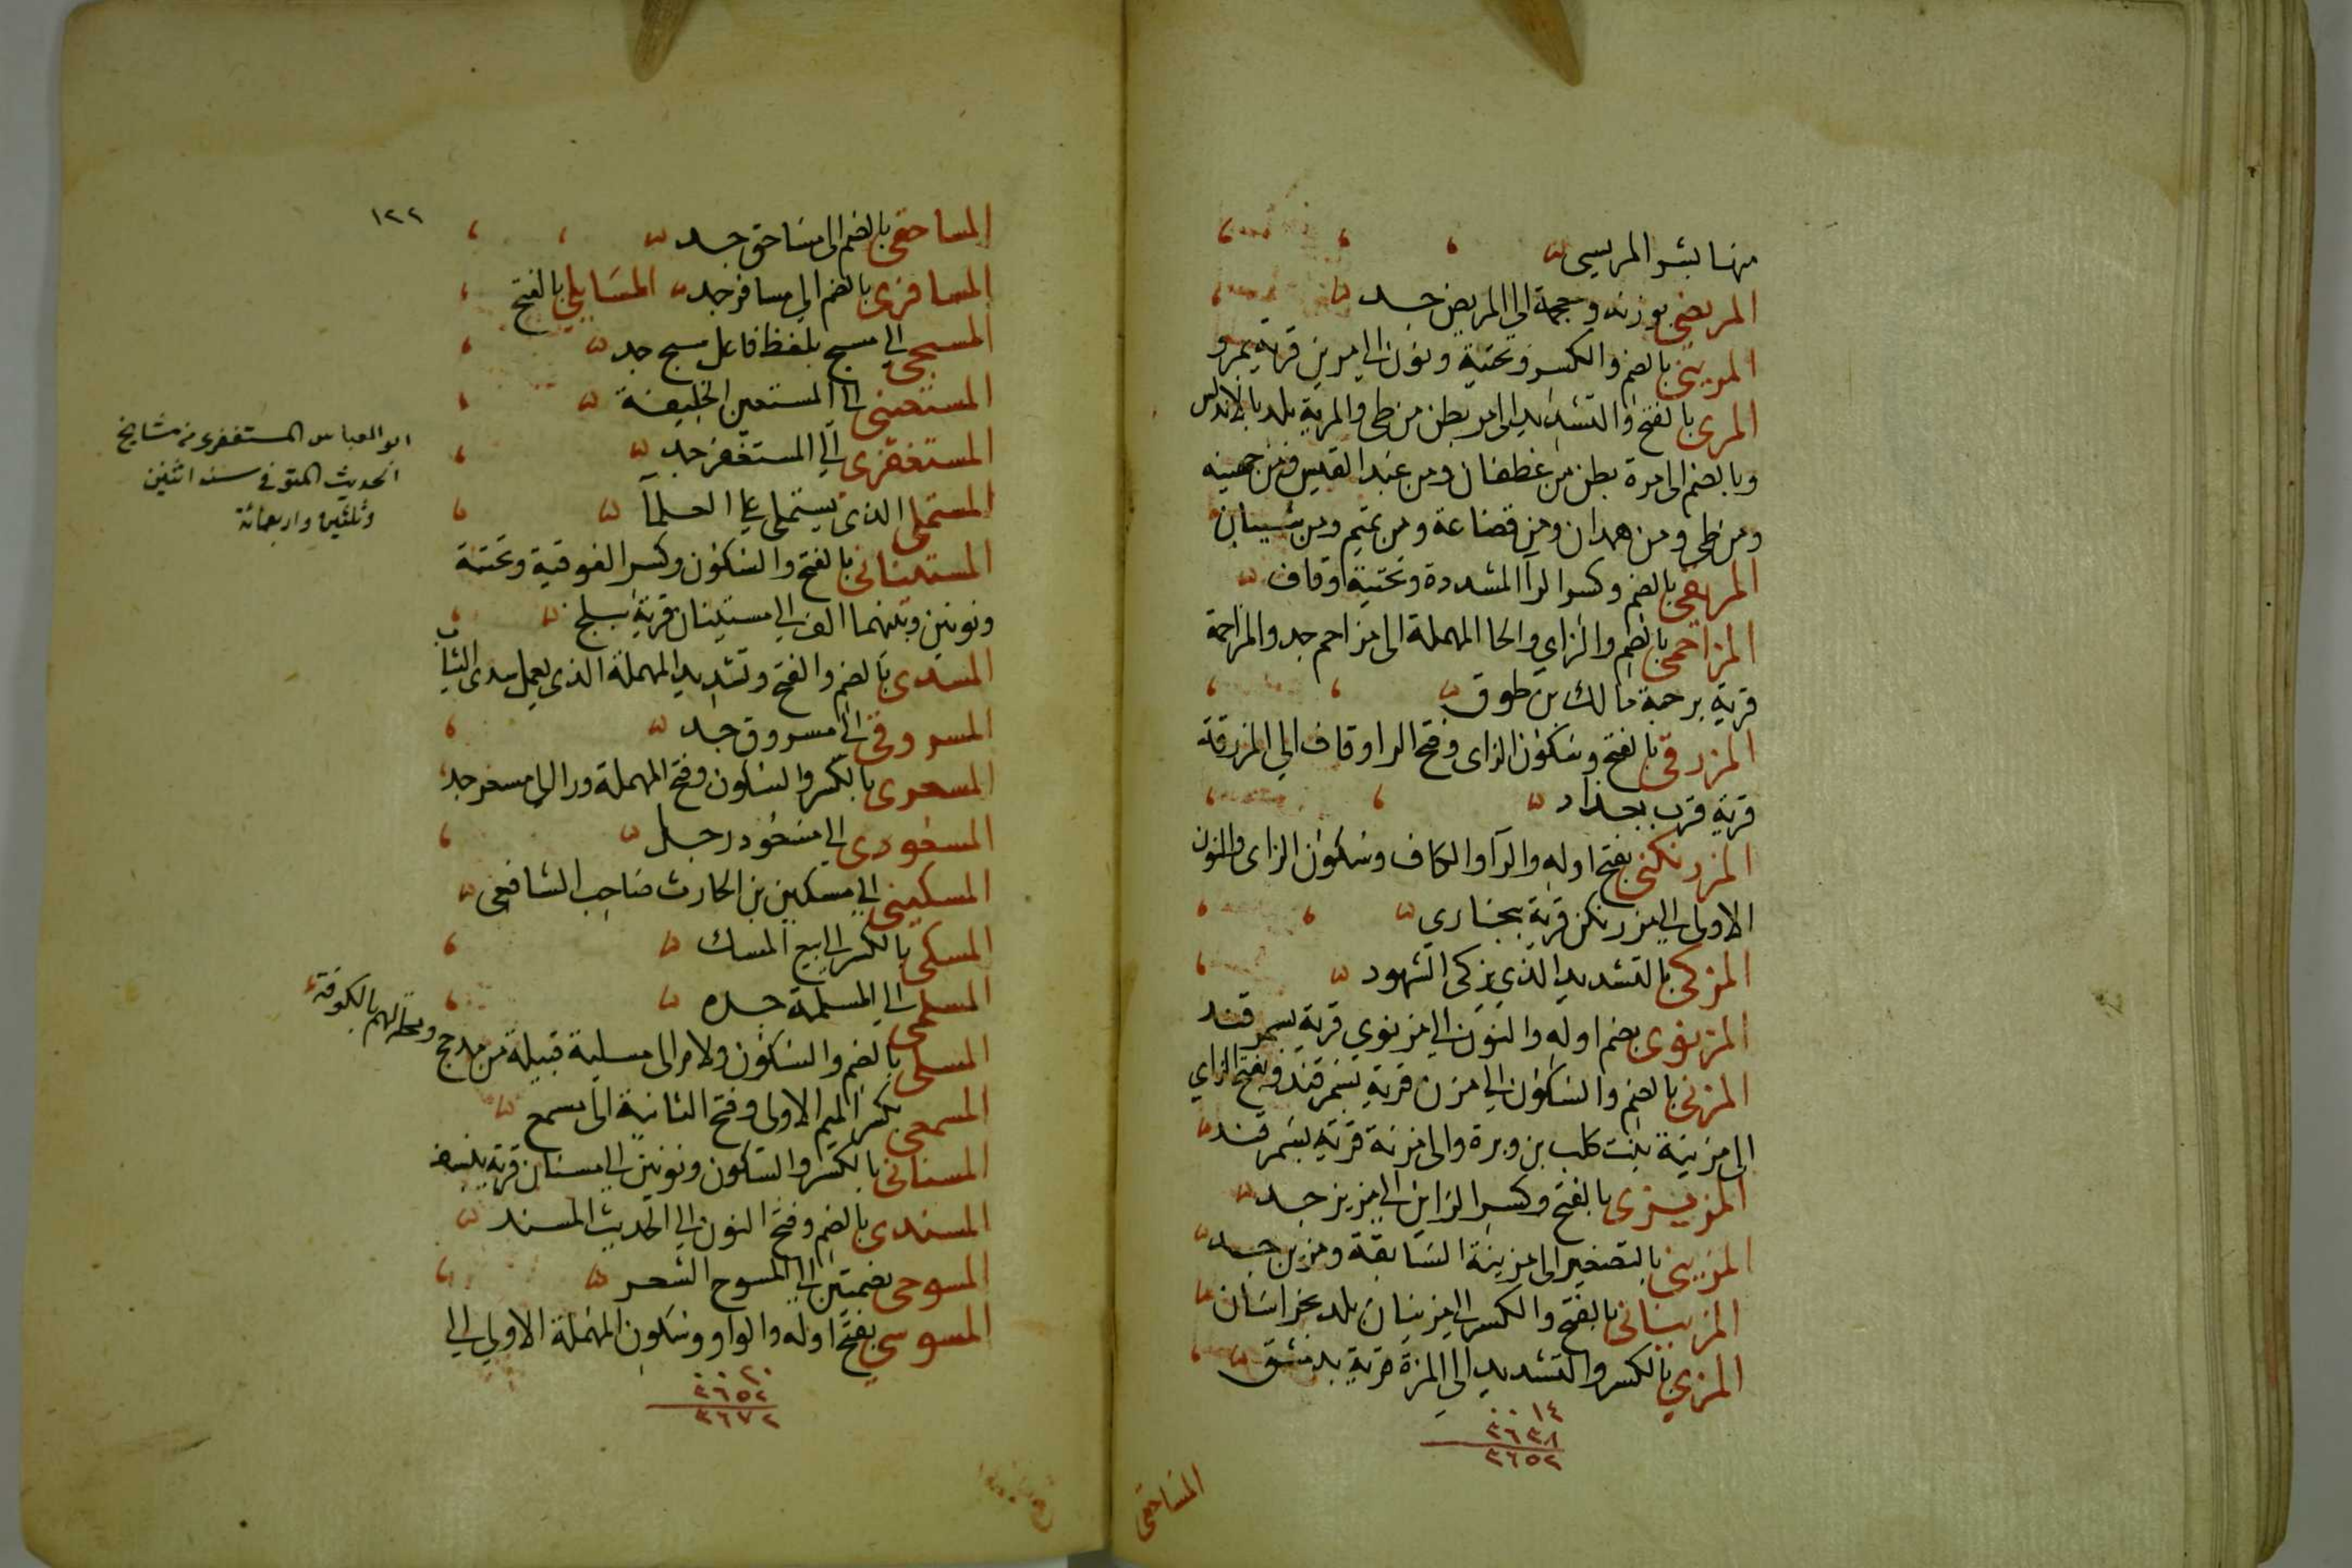 منها بشر المريسي
المريضي بوزنه ومعجمة الي المريض جد
المريني بالضم والكسر وتحتية ونون الي مرين قرية بمرو
المري بالفتح والتشديد الى مر بطن من طي والمرية بلد بالاندلس
وبالضم الى مرة بطن من غطفان ومن عبد القيس ومن جهينه
ومن طي ومن همدان ومن قضاعة ومن تميم ومن شيبان
المريقي بالضم وكسر الرا المشددة وتحتية وقاف
المزاحمي بالضم والزاي والحا المهملة الى مزاحم جد والمزاحمة
قرية برحبة مالك بن طوق
المزرقي بالفتح وسكون الزاى وفتح الرا وقاف الي المزرقة
قرية قرب بغداد
المزرنكني بفتح اوله والرا والكاف وسكون الزاى والنون
الاولى الي مزرنكن قرية ببخاري
المزكي بالتشديد الذي يزكى الشهود
المزنوى بضم اوله والنون الي مزنوي قرية بسمرقند
المزني بالضم والسكون الي مزن قرية بسمرقند وبفتح الزاي
الى مزينة بنت كلب بن وبرة والى مزنة قرية بسمرقند
المزيزى بالفتح وكسر الزاين الي مزيز جد
المزيني بالتصغير الى مزينة السابقة ومزين جد
المزيناني بالفتح والكسر الي مزينان بلد بخراسان
المزي بالكسر والتشديد الي المزة قرية بدمشق
١٤
٣٦٣٨
٣٦٥٢
المساحقي
١٢٢
المساحقي بالضم الى مساحق جد
المسافرى بالضم الي مسافر جد المسايلي بالفتح
المسبحي الي مسبح بلفظ فاعل سبح جد
المستعينى الى المستعين الخليفة
المستغفرى الي المستغفر جد
المستملى الذى يستملى على العلما
المستيناني بالفتح والسكون وكسر الفوقية وتحتية
ونونين وبينهما الف الي مستينان قرية ببلخ
المسدى بالضم والفتح وتشديد المهملة الذى يعمل سدى الثياب
المسروقي الى مسروق جد
المسعرى بالكسر والسكون وفتح المهملة ورا الي مسعر جد
المسعودى الي مسعود رجل
المسكيني الي مسكين بن الحارث صاحب الشافعى
المسكي بالكسر الي بيع المسك
المسلمي الي المسلمة جده
المسلي بالضم والسكون ولام الى مسلية قبيلة من مذحج ومحلتهم بالكوفة
المسمعي بكسر الميم الاولى وفتح الثانية الى مسمع
المسناني بالكسر والسكون ونونين الي مسنان قرية بنسف
المسندى بالضم وفتح النون الي الحديث المسند
المسوحى بضمتين الي المسوح الشعر
المسوسي بفتح اوله والواو وسكون المهملة الاولى الي
٢٠
٣٦٥٢
٣٦٧٢
ابو العباس المستغفرى من مشايخ
الحديث المتوفى سنه اثنين
وثلثين واربعمائة